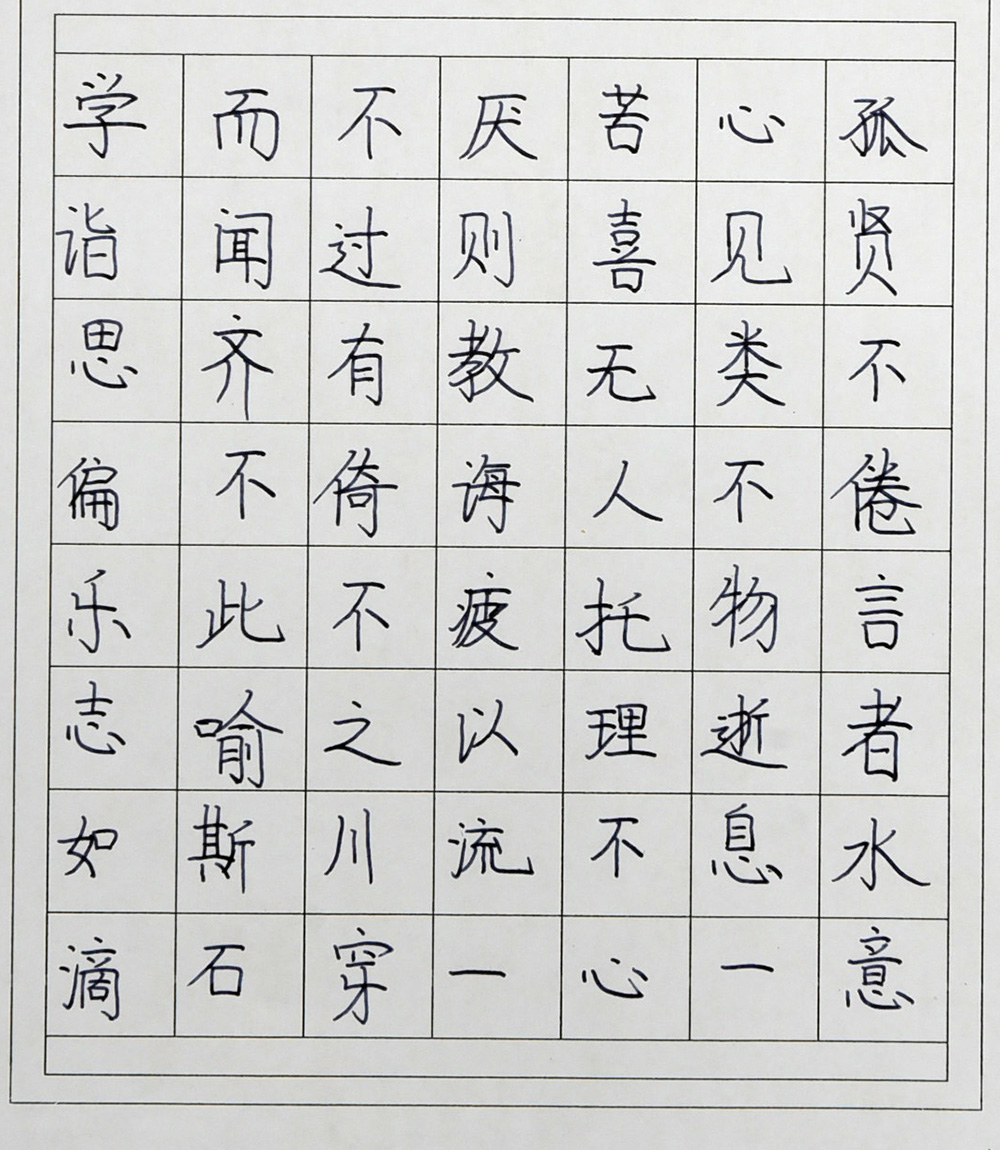 学而不厌苦心孤
诣闻过则喜见贤
思齐有教无类不
偏不倚诲人不倦
乐此不疲托物言
志喻之以理逝者
如斯川流不息水
滴石穿一心一意